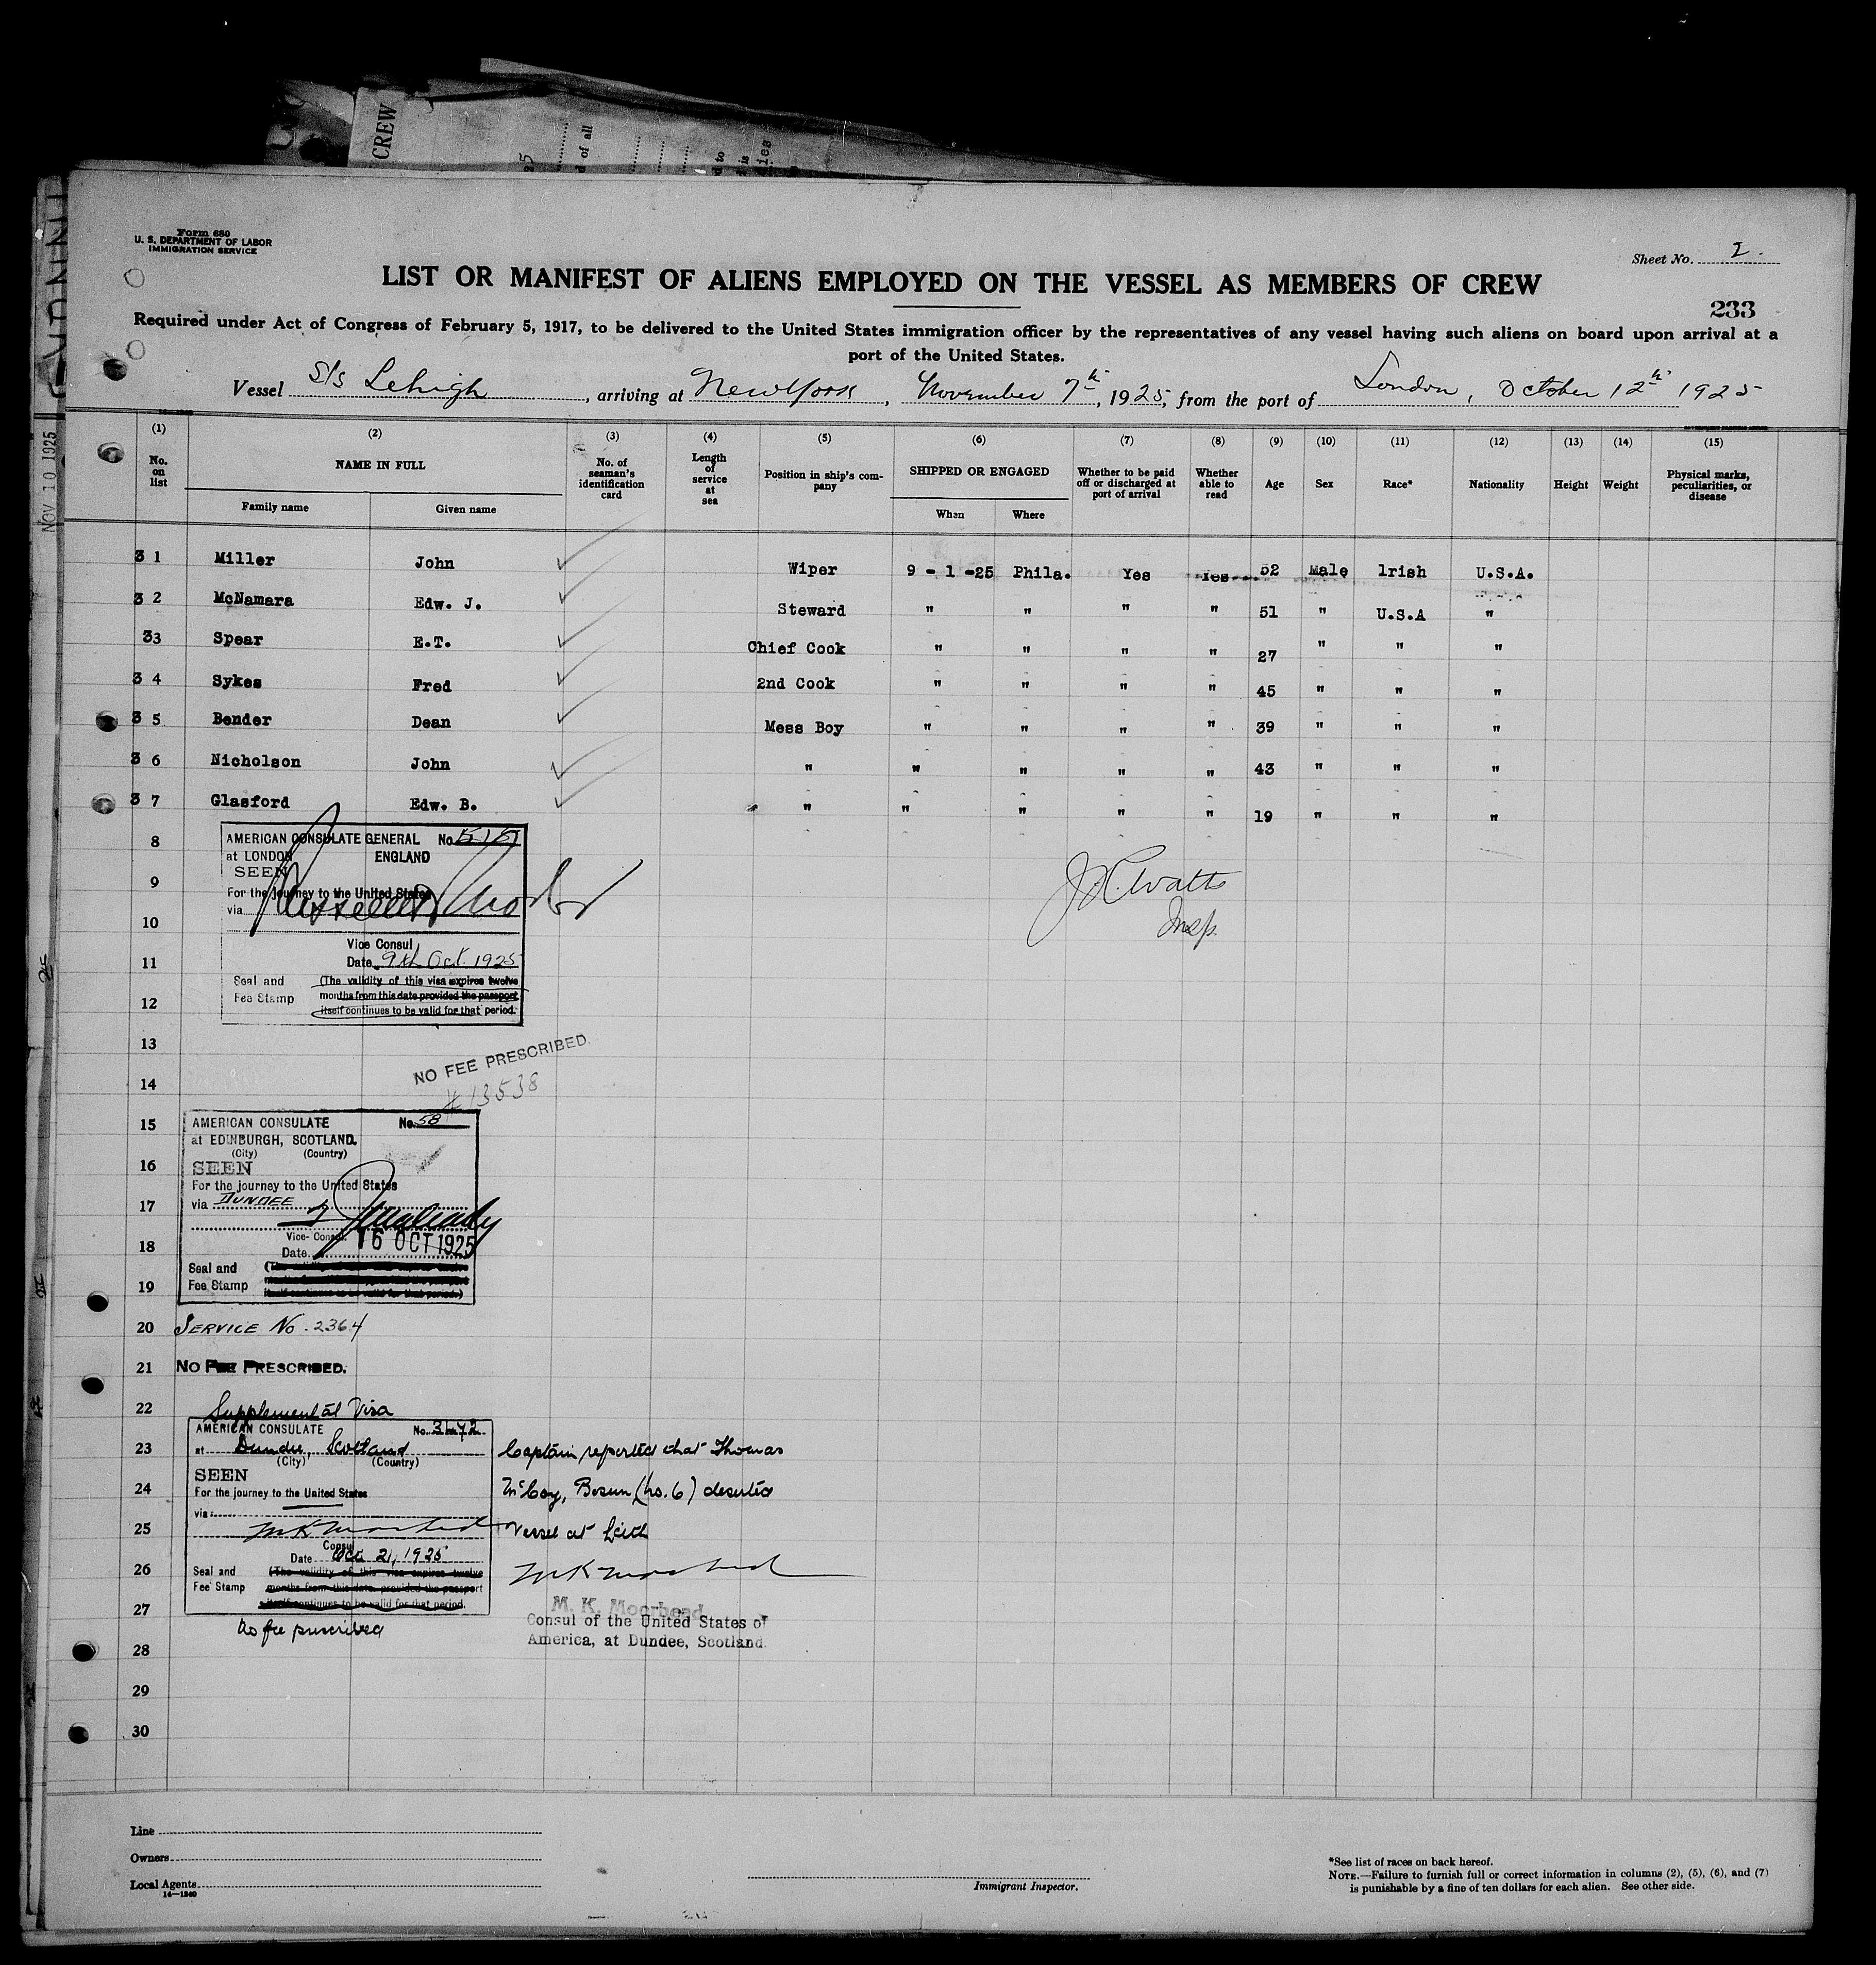 CREW
Form 680
U. S. DEPARTMENT OF LABOR
IMMIGRATION SERVICE
Sheet No. 2.
LIST OR MANIFEST OF ALIENS EMPLOYED ON THE VESSEL AS MEMBERS OF CREW
233
Required under Act of Congress of February 5, 1917, to be delivered to the United States immigration officer by the representatives of any vessel having such aliens on board upon arrival at a
port of the United States.
Vessel S/s Lehigh, arriving at New York, November 7th, 1925, from the port of London, October 12th 1925
NOV 10 1925
(1) (2) (3) (4) (5) (6) (7) (8) (9) (10) (11) (12) (13) (14) (15)
No. on list NAME IN FULL No. of seaman's identification card Length of service at sea Position in ship's company SHIPPED OR ENGAGED Whether to be paid off or discharged at port of arrival Whether able to read Age Sex Race* Nationality Height Weight Physical marks, peculiarities, or disease
Family name Given name When Where
31 Miller John Wiper 9 - 1 -25 Phila. Yes Yes 52 Male Irish U.S.A.
32 McNamara Edw. J. Steward " " " " 51 " U.S.A "
33 Spear E.T. Chief Cook " " " " 27 " " "
34 Sykes Fred 2nd Cook " " " " 45 " " "
35 Bender Dean Mess Boy " " " " 39 " " "
36 Nicholson John " " " " " 43 " " "
37 Glasford Edw. B. " " " " " 19 " " "
8
AMERICAN CONSULATE GENERAL No.
at LONDON ENGLAND
SEEN
9
For the journey to the United States
via
J.C. Watts
Insp.
10
Vice Consul
11
Date 9th Oct. 1925
Seal and (The validity of this visa expires twelve
12
Fee Stamp months from this date provided the passport
itself continues to be valid for that period.
13
NO FEE PRESCRIBED.
14
13538
15
AMERICAN CONSULATE No. 58
at EDINBURGH, SCOTLAND.
(City) (Country)
16
SEEN
For the journey to the United States
17
via DUNDEE
Vice-Consul
18
Date 16 OCT 1925
Seal and (The validity of this visa expires twelve
19
Fee Stamp months from this date provided the passport
itself continues to be valid for that period.)
20 SERVICE No. 2364
21 NO FEE PRESCRIBED.
22 Supplemental Visa
AMERICAN CONSULATE No. 3472
23
at Dundee, Scotland
(City) (Country)
Captain reported that Thomas
SEEN
24
For the journey to the United States
McCoy, Bosun (no. 6) deserted
via
25
vessel at Leith
M K Moorhead
Consul
Date Oct 21, 1925
26
M K Moorhead
Seal and (The validity of this visa expires twelve
Fee Stamp months from this date provided the passport
itself continues to be valid for that period.
27
M. K. Moorhead
No fee prescribed
Consul of the United States of
America, at Dundee, Scotland.
28
29
30
Line
Owners
Local Agents
14—1240
Immigrant Inspector.
*See list of races on back hereof.
NOTE.—Failure to furnish full or correct information in columns (2), (5), (6), and (7)
is punishable by a fine of ten dollars for each alien. See other side.